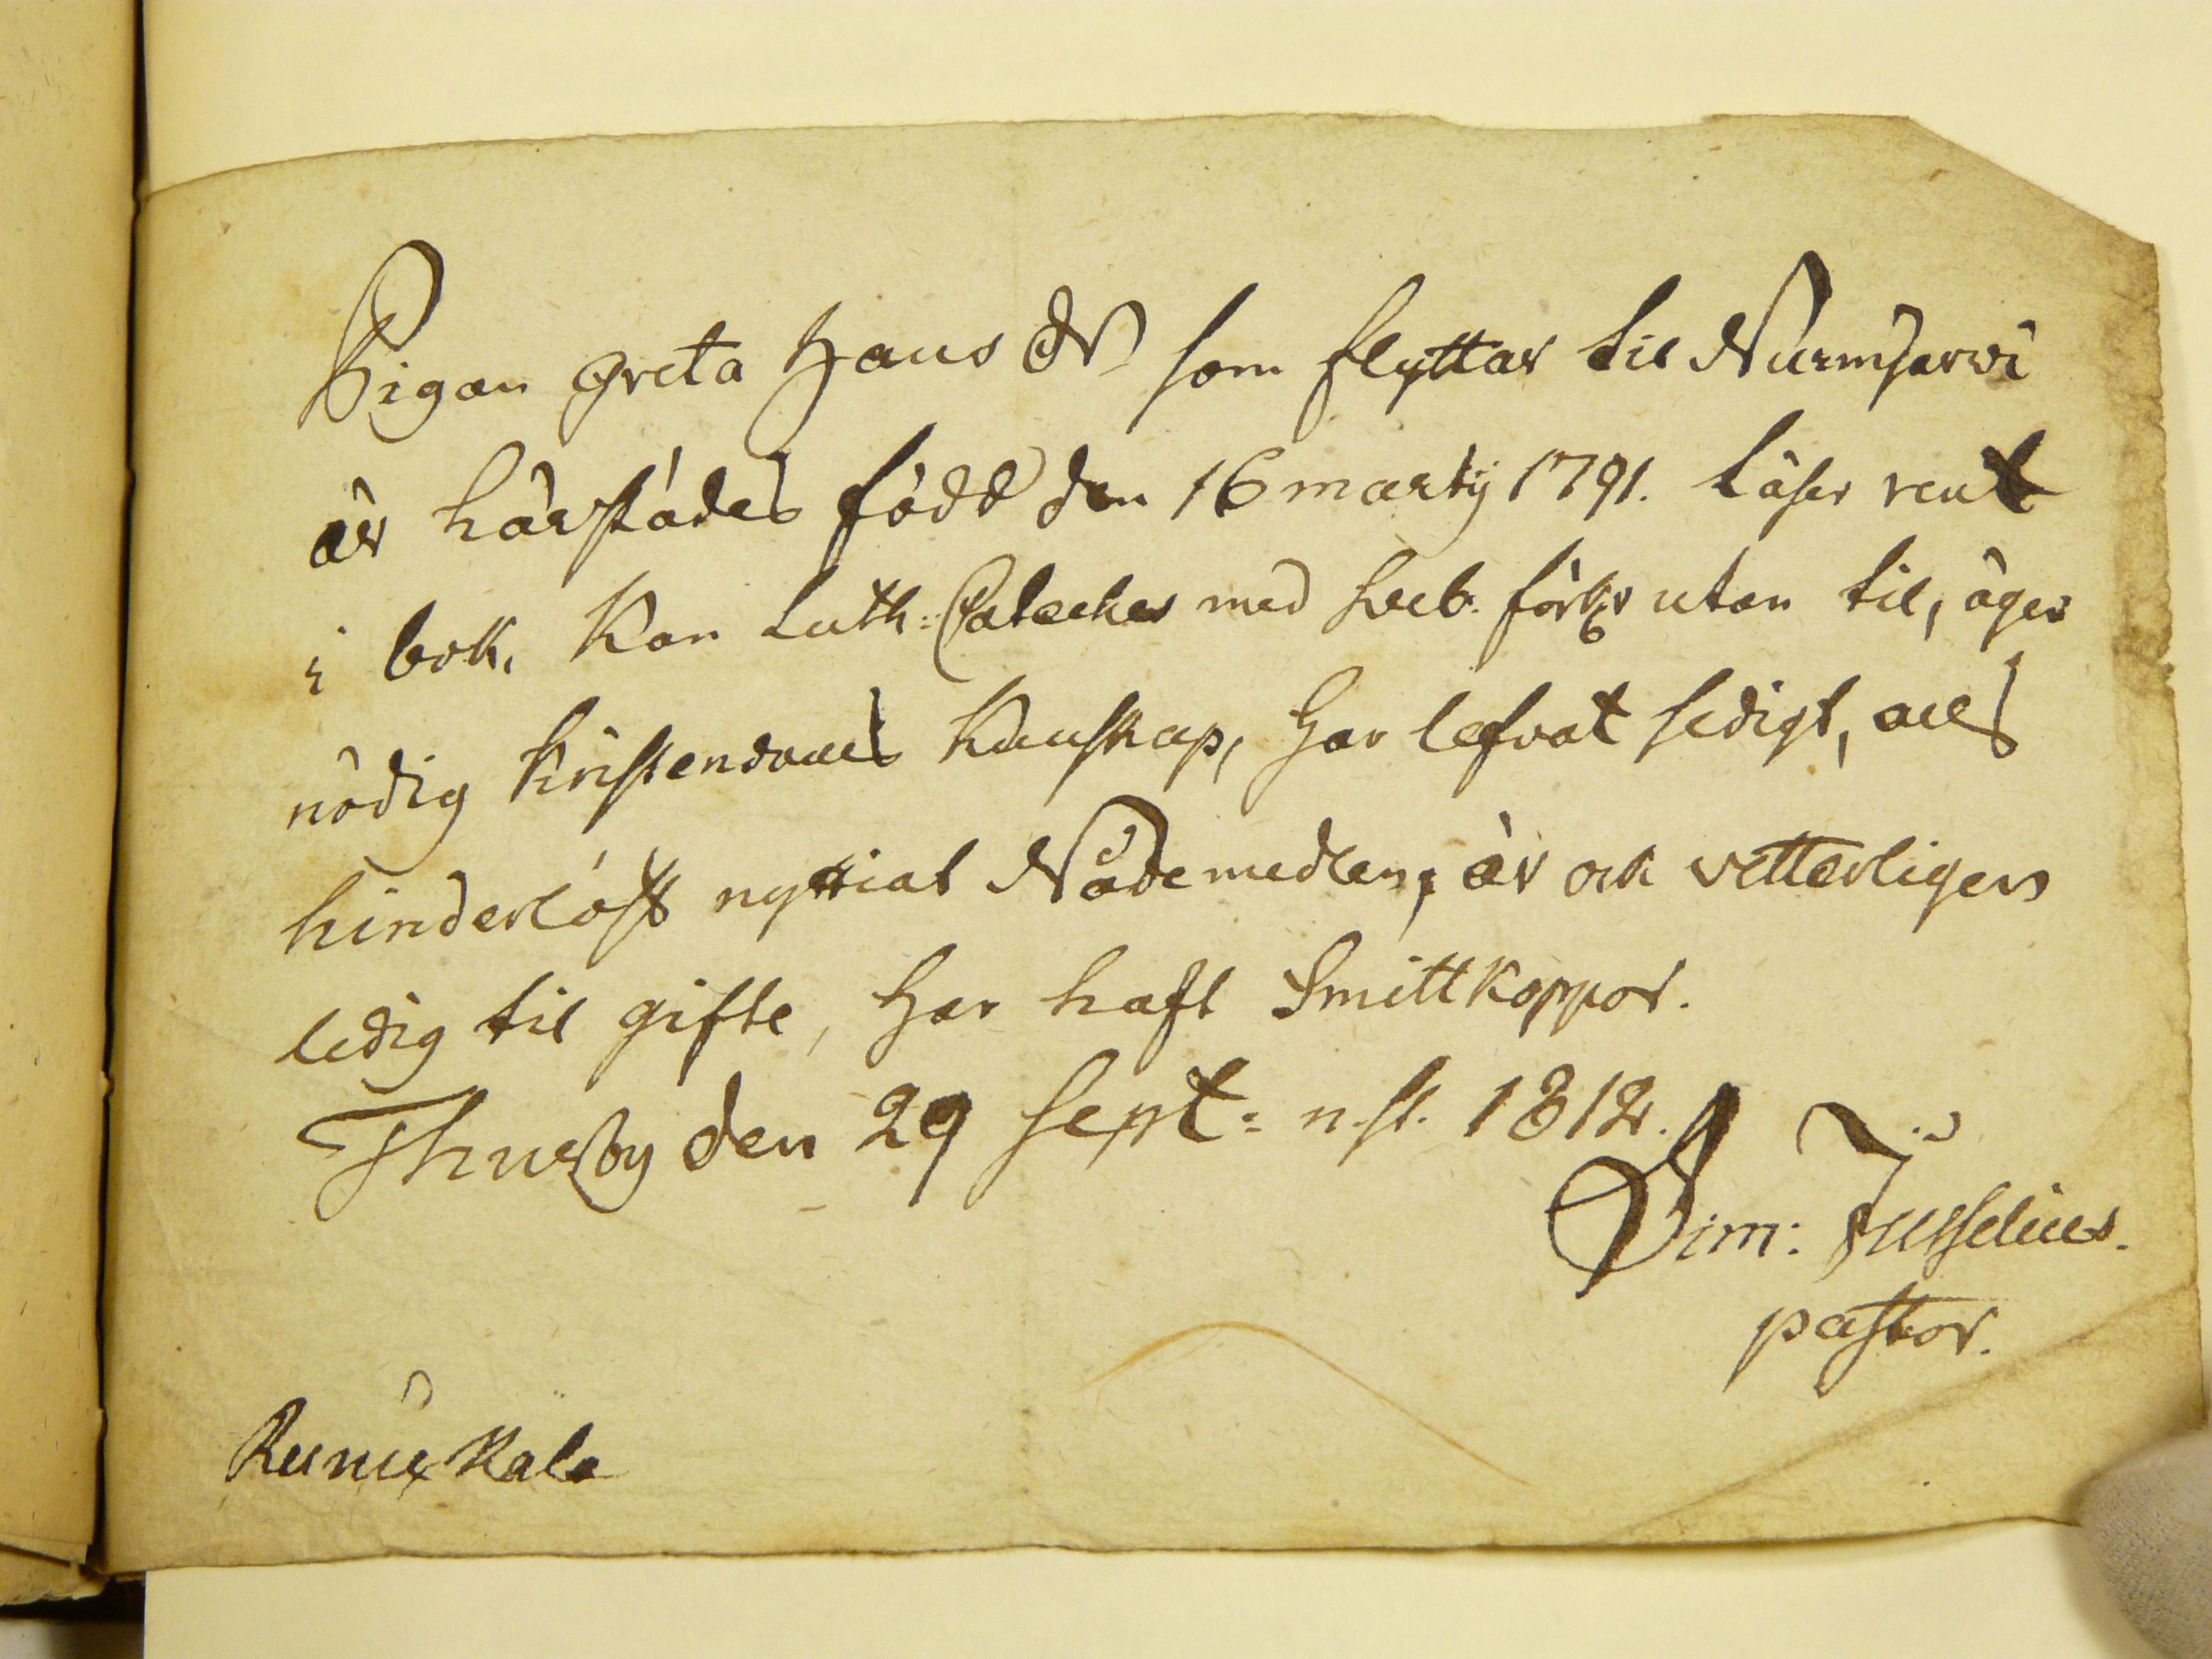 Pigan Greta Hans dr som flyttar til Nurmjärwi
är härstädes född den 16 martij 1791. Läser rent
i bok, kan Luth: Cateches med Sveb. förkl:r utan til, äger
nödig kristendoms kunskap, har lefvat sedigt, alls
hinderlöst nyttiat Nådemedlen, är ock vetterligen
ledig til gifte, har haft Smittkoppor.
Thusby den 29 Sept: n.st. 1812.
Sim: Jusselius.
pastor.